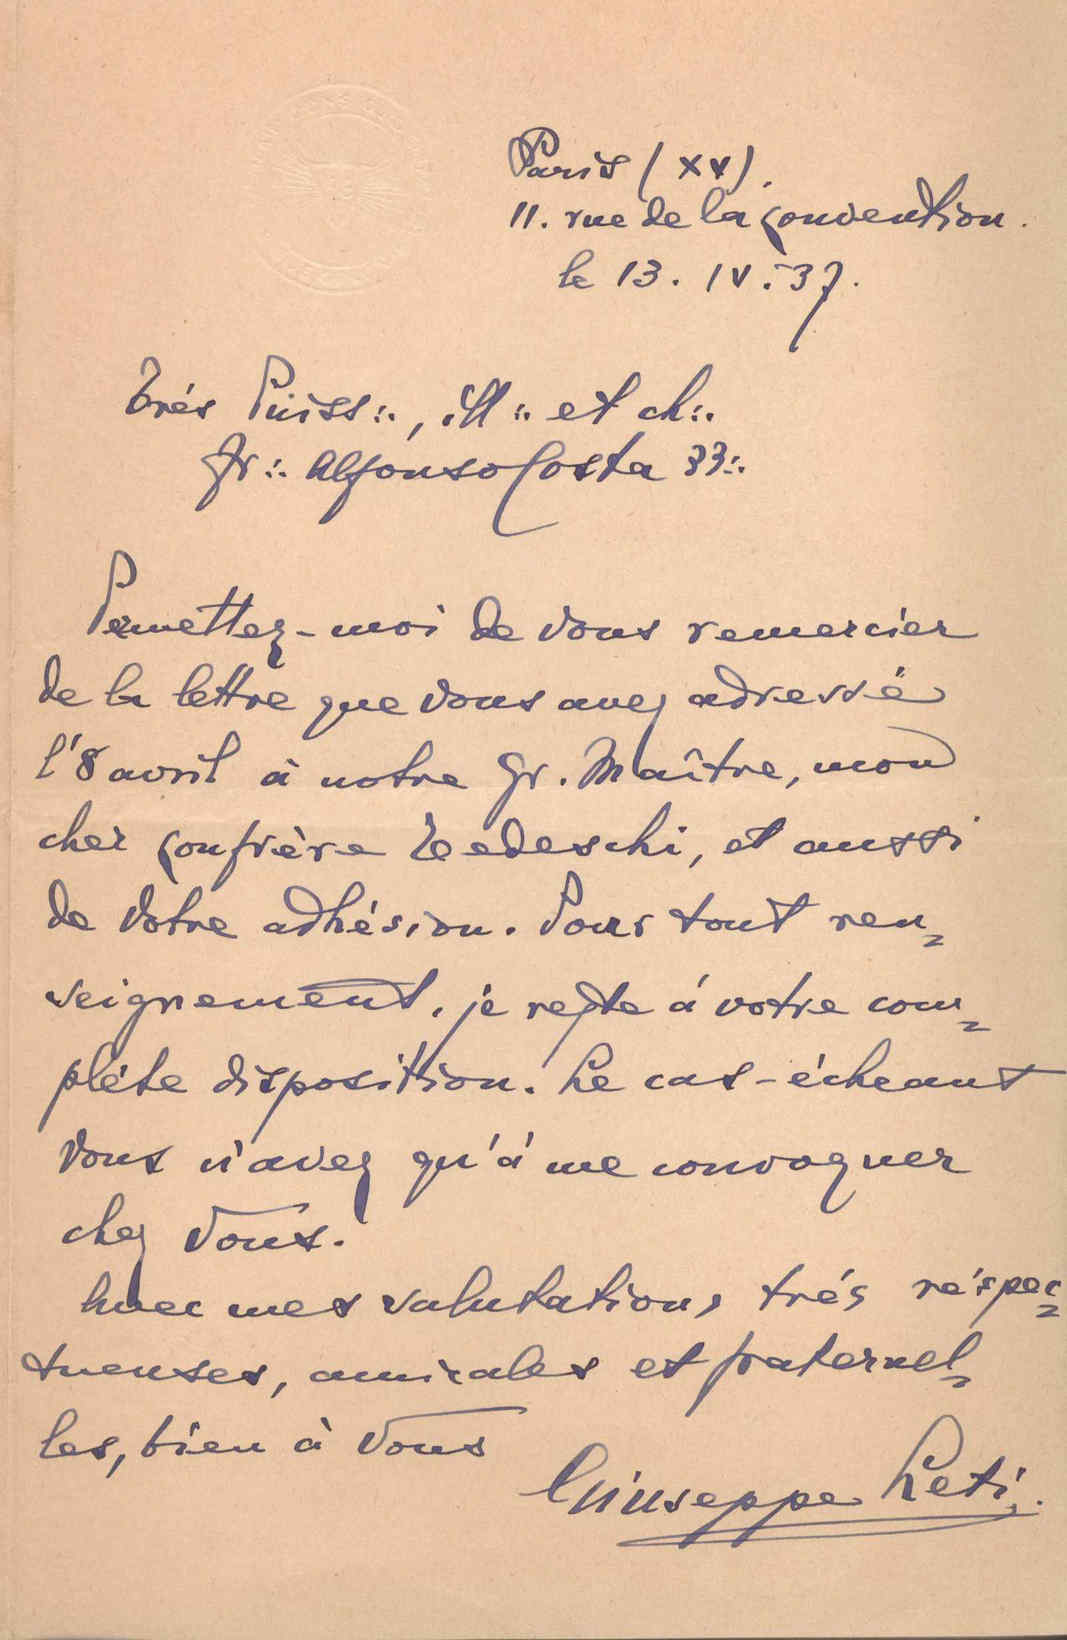 Paris (XV).
11. rue de la Convention.
le 13. IV. 37.
Trés Puiss∴, ill∴ et ch∴
Fr∴ Alfonso Costa 33∴
Permettez-moi de vous remercier
de la lettre que vous avez adressé
l'8 avril à notre Gr. Maître, mon
cher Confrère Tedeschi, et aussi
de votre adhésion. Pour tout ren=
seignement, je reste á votre com=
pléte disposition. Le cas-échéant
vous n'avez qu'á me convoquer
chez vous.
Avec mes salutations trés réspec=
tueuses, amicales et fraternel=
les, bien à vous
Giuseppe Leti.